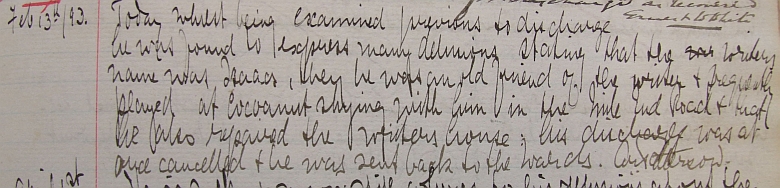 discharge as recovered
Ernest White
Feb 13th/93. Today whilst being examined previous to discharge
he was found to express many delusions stating that the writers
name was Isaacs, that he was an old friend of the writer & frequently
played at Cocoanut shying with him in the Mile End Road & that
he also repaired the writers house; his discharge was at
once cancelled & he was sent back to the wards.